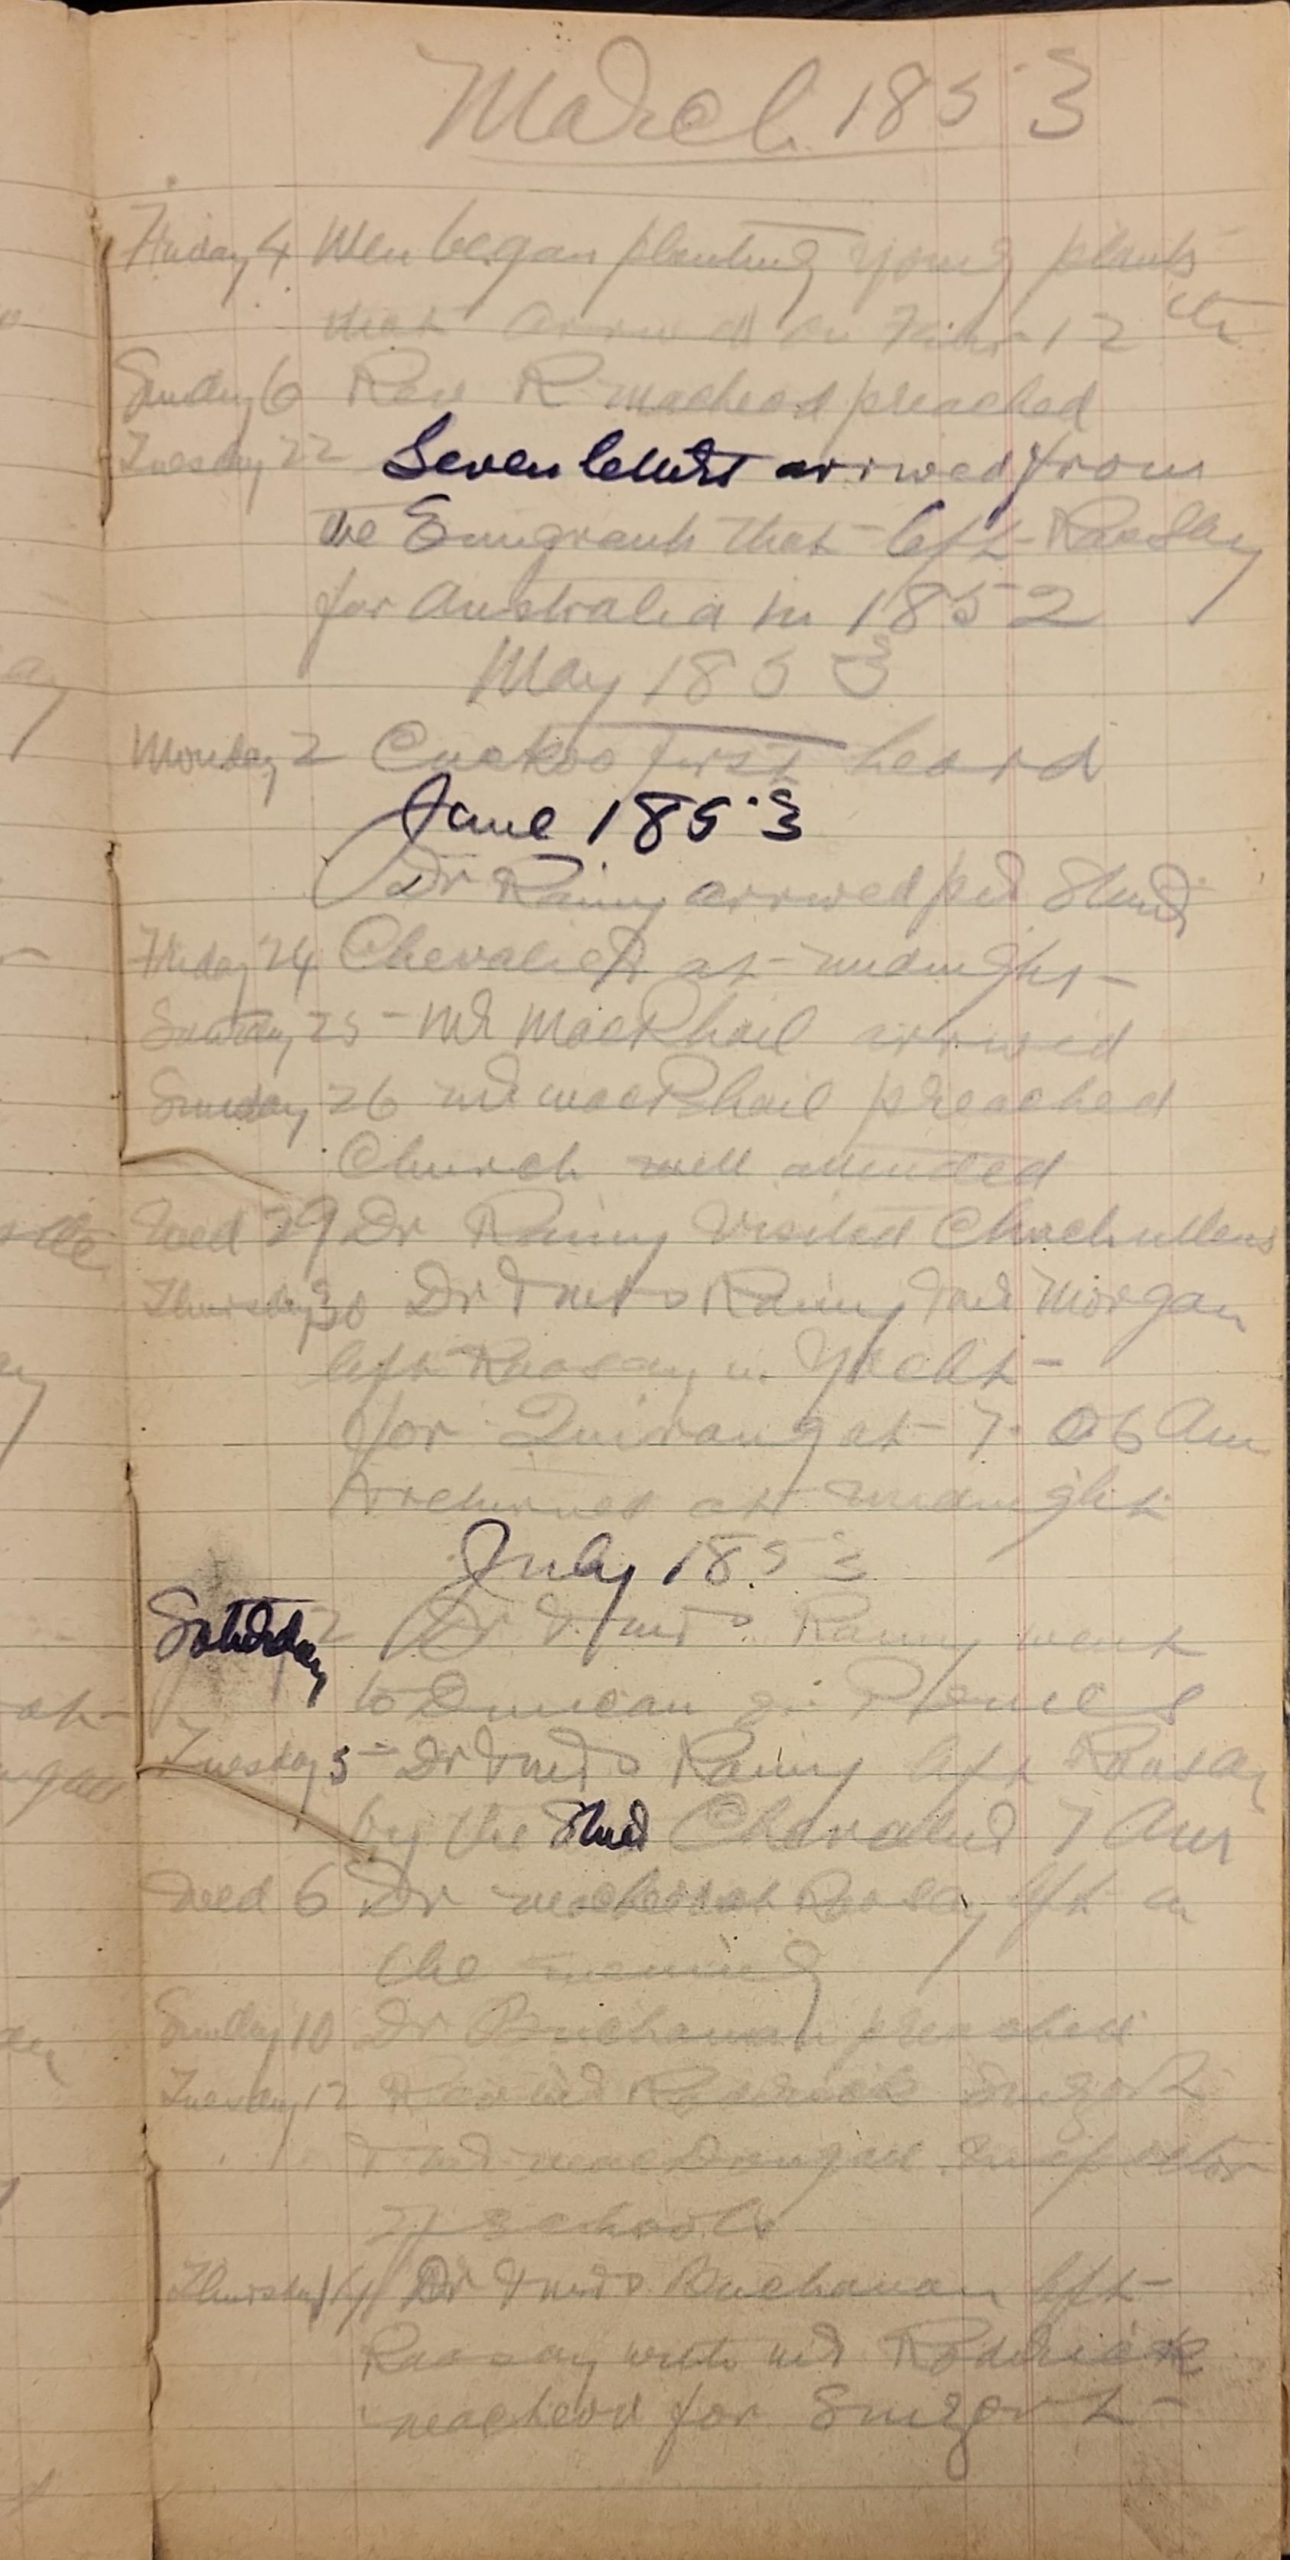 March 1853
Friday 4 Men began planting young plants
that arrived on Febr 12th
Sunday 6 Rev R Macleod preached
Tuesday 22 Seven letters arrived from
the Emigrants that left Raasay
for Australia in 1852
May 1853
Monday 2 Cuckoo first heard
June 1853
Dr Rainy arrived per Stmr
Friday 24 Chevalier at midnight
Saturday 25 Mr MacPhail arrived
Sunday 26 Mr MacPhail preached
Church well attended
Wed 29 Dr Rainy visited
Thursday 30 Dr & Mrs Rainy & Mr Morgan
left Raasay in Yacht
for Quirang at 7.06 Am
& returned at midnight
July 1853
Saturday 2 Dr & Mrs Rainy went
to Duncan
Tuesday 5 Dr & Mrs Rainy left Raasay
by the Stmr Chevalier 7 Am
Wed 6 Dr Raasay left in
the
Sunday 10 Dr Buchanan preached
Tuesday 12 Rev Mr Roderick Snizort
& Mr MacDougall Inspector
of Schools
Thursday 14 Dr & Mrs Buchanan left
Raasay with Mr Roderick
Macleod for Snizort